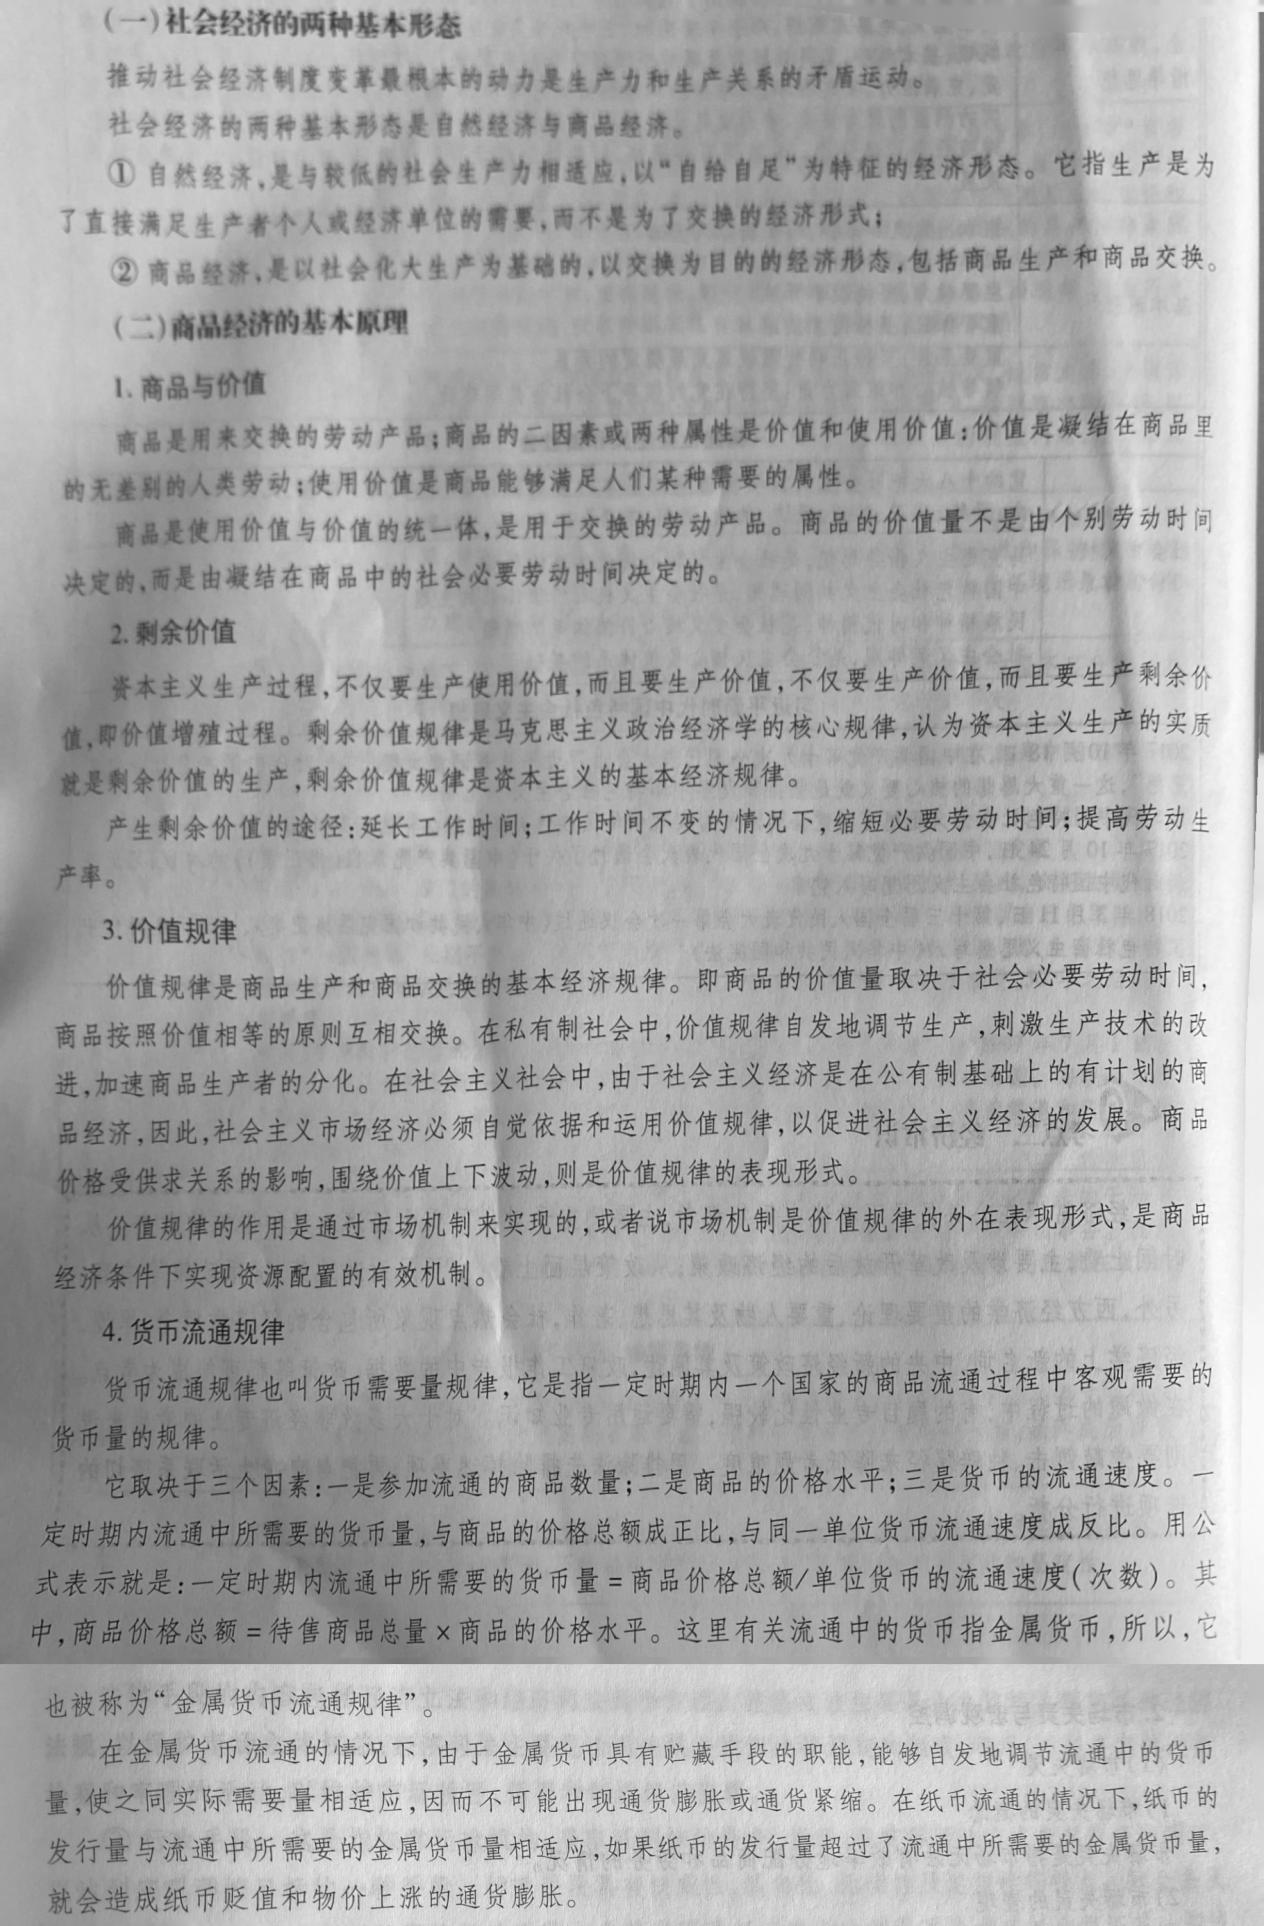 (一)社会经济的两种基本形态
推动社会经济制度变革最根本的动力是生产力和生产关系的矛盾运动。
社会经济的两种基本形态是自然经济与商品经济。
① 自然经济,是与较低的社会生产力相适应,以“自给自足”为特征的经济形态。它指生产是为
了直接满足生产者个人或经济单位的需要,而不是为了交换的经济形式;
② 商品经济,是以社会化大生产为基础的,以交换为目的的经济形态,包括商品生产和商品交换。
(二)商品经济的基本原理
1. 商品与价值
商品是用来交换的劳动产品;商品的二因素或两种属性是价值和使用价值:价值是凝结在商品里
的无差别的人类劳动;使用价值是商品能够满足人们某种需要的属性。
商品是使用价值与价值的统一体,是用于交换的劳动产品。商品的价值量不是由个别劳动时间
决定的,而是由凝结在商品中的社会必要劳动时间决定的。
2. 剩余价值
资本主义生产过程,不仅要生产使用价值,而且要生产价值,不仅要生产价值,而且要生产剩余价
值,即价值增殖过程。剩余价值规律是马克思主义政治经济学的核心规律,认为资本主义生产的实质
就是剩余价值的生产,剩余价值规律是资本主义的基本经济规律。
产生剩余价值的途径:延长工作时间;工作时间不变的情况下,缩短必要劳动时间;提高劳动生
产率。
3. 价值规律
价值规律是商品生产和商品交换的基本经济规律。即商品的价值量取决于社会必要劳动时间,
商品按照价值相等的原则互相交换。在私有制社会中,价值规律自发地调节生产,刺激生产技术的改
进,加速商品生产者的分化。在社会主义社会中,由于社会主义经济是在公有制基础上的有计划的商
品经济,因此,社会主义市场经济必须自觉依据和运用价值规律,以促进社会主义经济的发展。商品
价格受供求关系的影响,围绕价值上下波动,则是价值规律的表现形式。
价值规律的作用是通过市场机制来实现的,或者说市场机制是价值规律的外在表现形式,是商品
经济条件下实现资源配置的有效机制。
4. 货币流通规律
货币流通规律也叫货币需要量规律,它是指一定时期内一个国家的商品流通过程中客观需要的
货币量的规律。
它取决于三个因素:一是参加流通的商品数量;二是商品的价格水平;三是货币的流通速度。一
定时期内流通中所需要的货币量,与商品的价格总额成正比,与同一单位货币流通速度成反比。用公
式表示就是:一定时期内流通中所需要的货币量=商品价格总额/单位货币的流通速度(次数)。其
中,商品价格总额=待售商品总量×商品的价格水平。这里有关流通中的货币指金属货币,所以,它
也被称为“金属货币流通规律”。
在金属货币流通的情况下,由于金属货币具有贮藏手段的职能,能够自发地调节流通中的货币
量,使之同实际需要量相适应,因而不可能出现通货膨胀或通货紧缩。在纸币流通的情况下,纸币的
发行量与流通中所需要的金属货币量相适应,如果纸币的发行量超过了流通中所需要的金属货币量,
就会造成纸币贬值和物价上涨的通货膨胀。